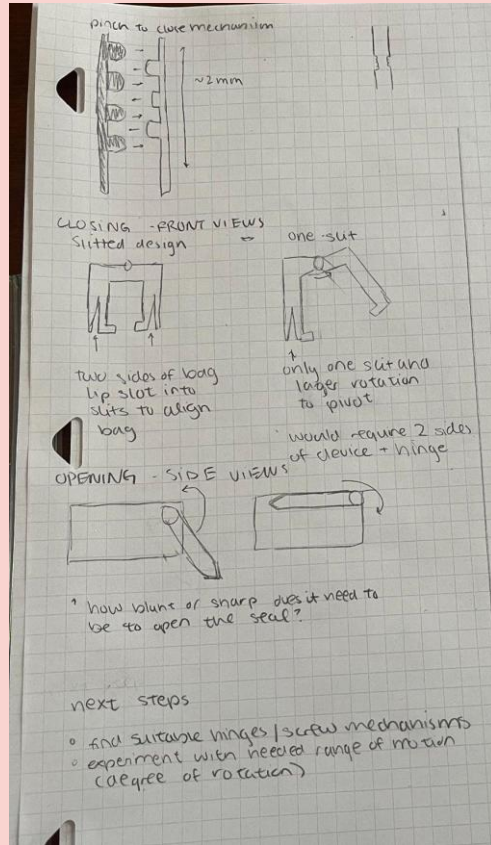 pinch to close mechanism
~2mm
CLOSING - FRONT VIEWS
Slitted design
one slit
two sides of bag
lip slot into
slits to align
bag
only one slit and
lager rotation
to pivot
would require 2 sides
of device + hinge
OPENING - SIDE VIEWS
how blunt or sharp does it need to
be to open the seal?
next steps
find suitable hinges / screw mechanisms
experiment with needed range of motion
(degree of rotation)